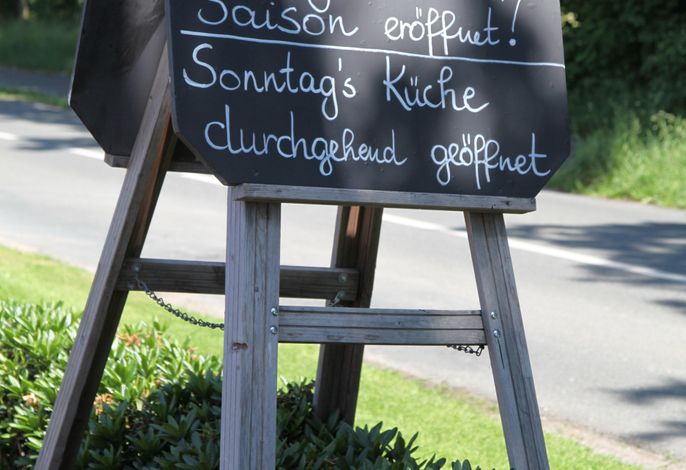 Saison eröffnet!
Sonntag's Küche
durchgehend geöffnet